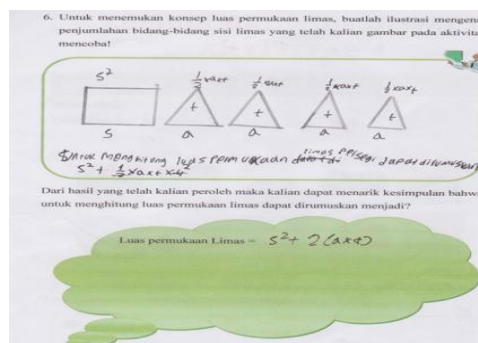 6. Untuk menemukan konsep luas permukaan limas, buatlah ilustrasi mengena
penjumlahan bidang-bidang sisi limas yang telah kalian gambar pada aktivita
mencoba!
s² ½xaxt ½xaxt ½xaxt ½xaxt
t t t t
s a a a a
Untuk menghitung luas permukaan limas persegi dapat dirumuskan
s² + ½xaxtx4
Dari hasil yang telah kalian peroleh maka kalian dapat menarik kesimpulan bahw
untuk menghitung luas permukaan limas dapat dirumuskan menjadi?
Luas permukaan Limas = s² + 2(axt)